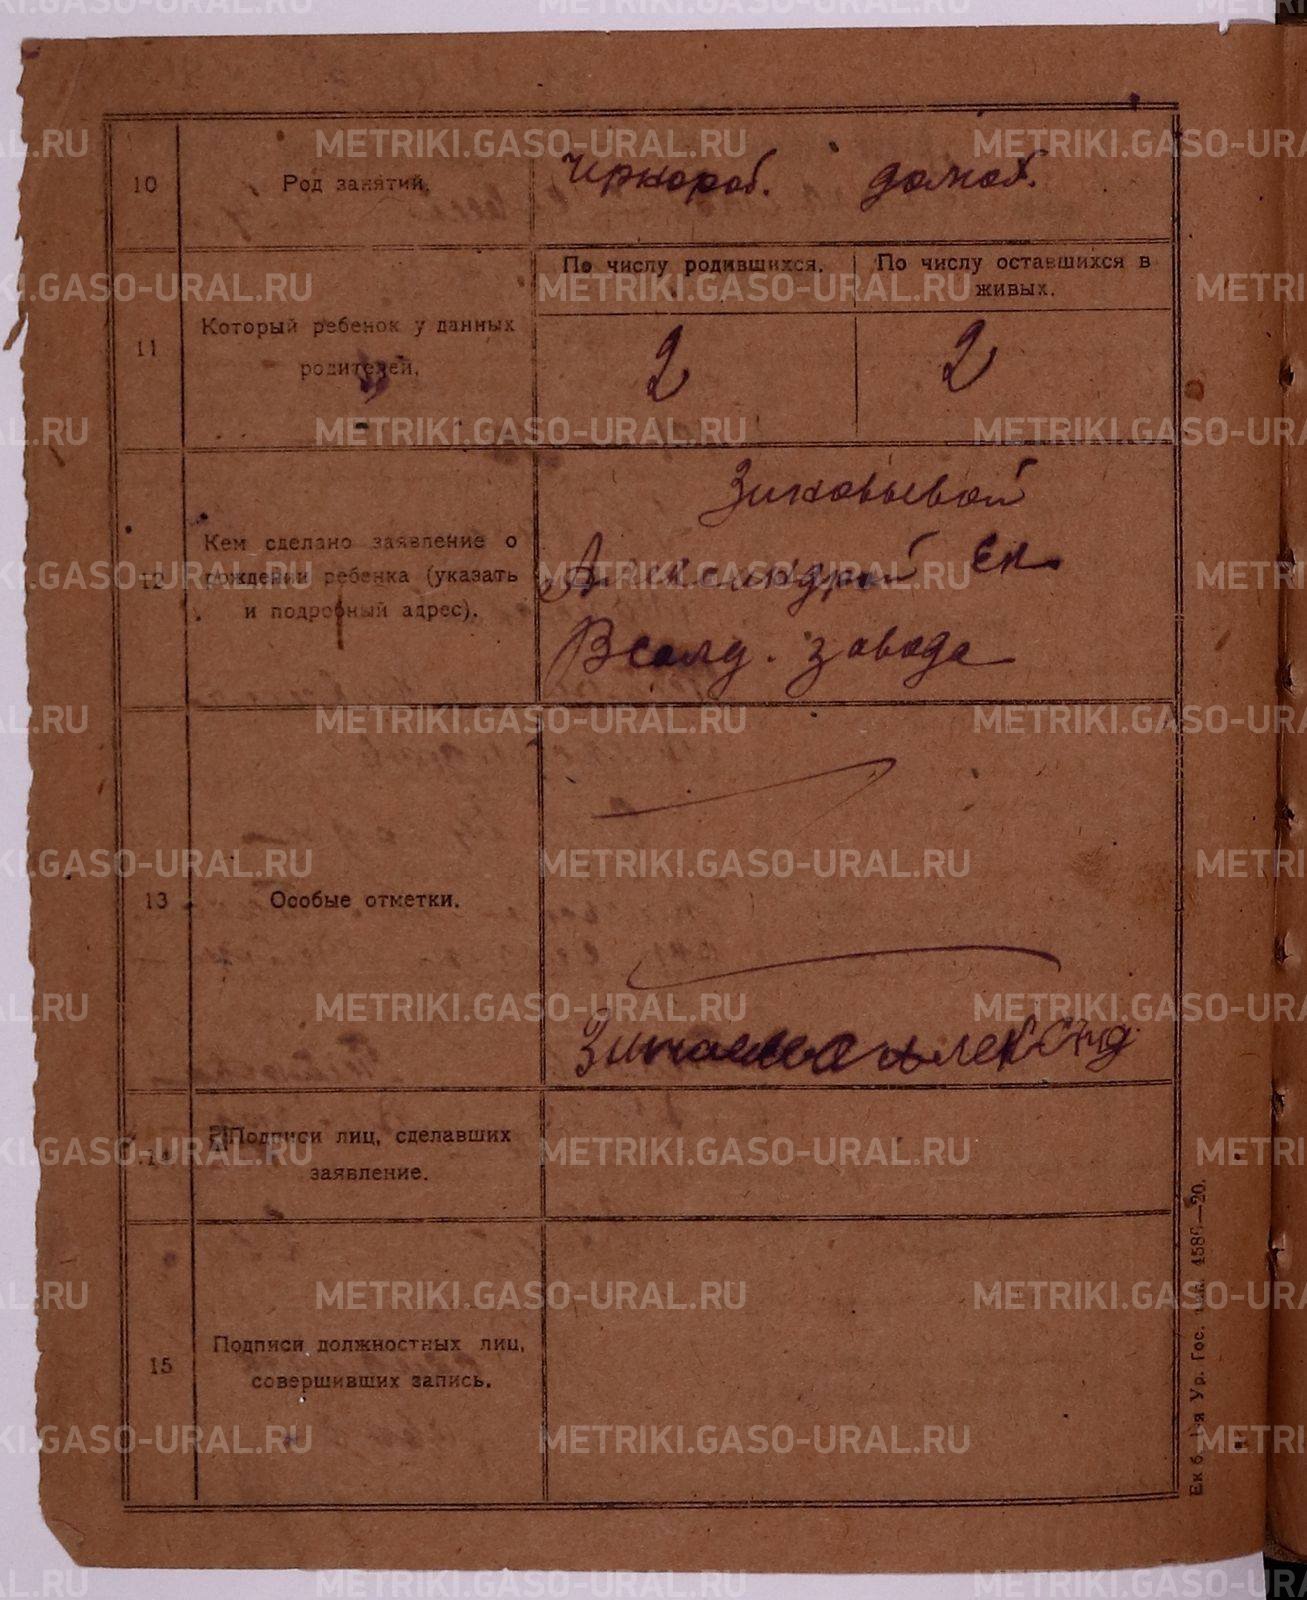 10 Род занятий. Чернораб. домах.
По числу родившихся. По числу оставшихся в живых.
11 Который ребенок у данных родителей.
2 2
12 Кем сделано заявление о
рождении ребенка (указать
и подробный адрес).
Зиновьевой
Александрой Ек
Всалд. завода
13 Особые отметки.
14 Подписи лиц, сделавших
заявление.
15 Подписи должностных лиц,
совершивших запись.
Ек б. 1-я Ур. Гос. тип. 4586—20.
METRIKI.GASO-URAL.RU